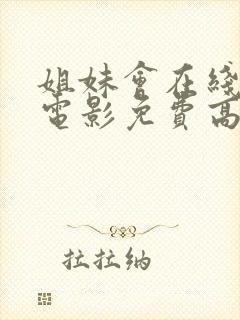 姐妹會在綫
電影免費高
拉拉納